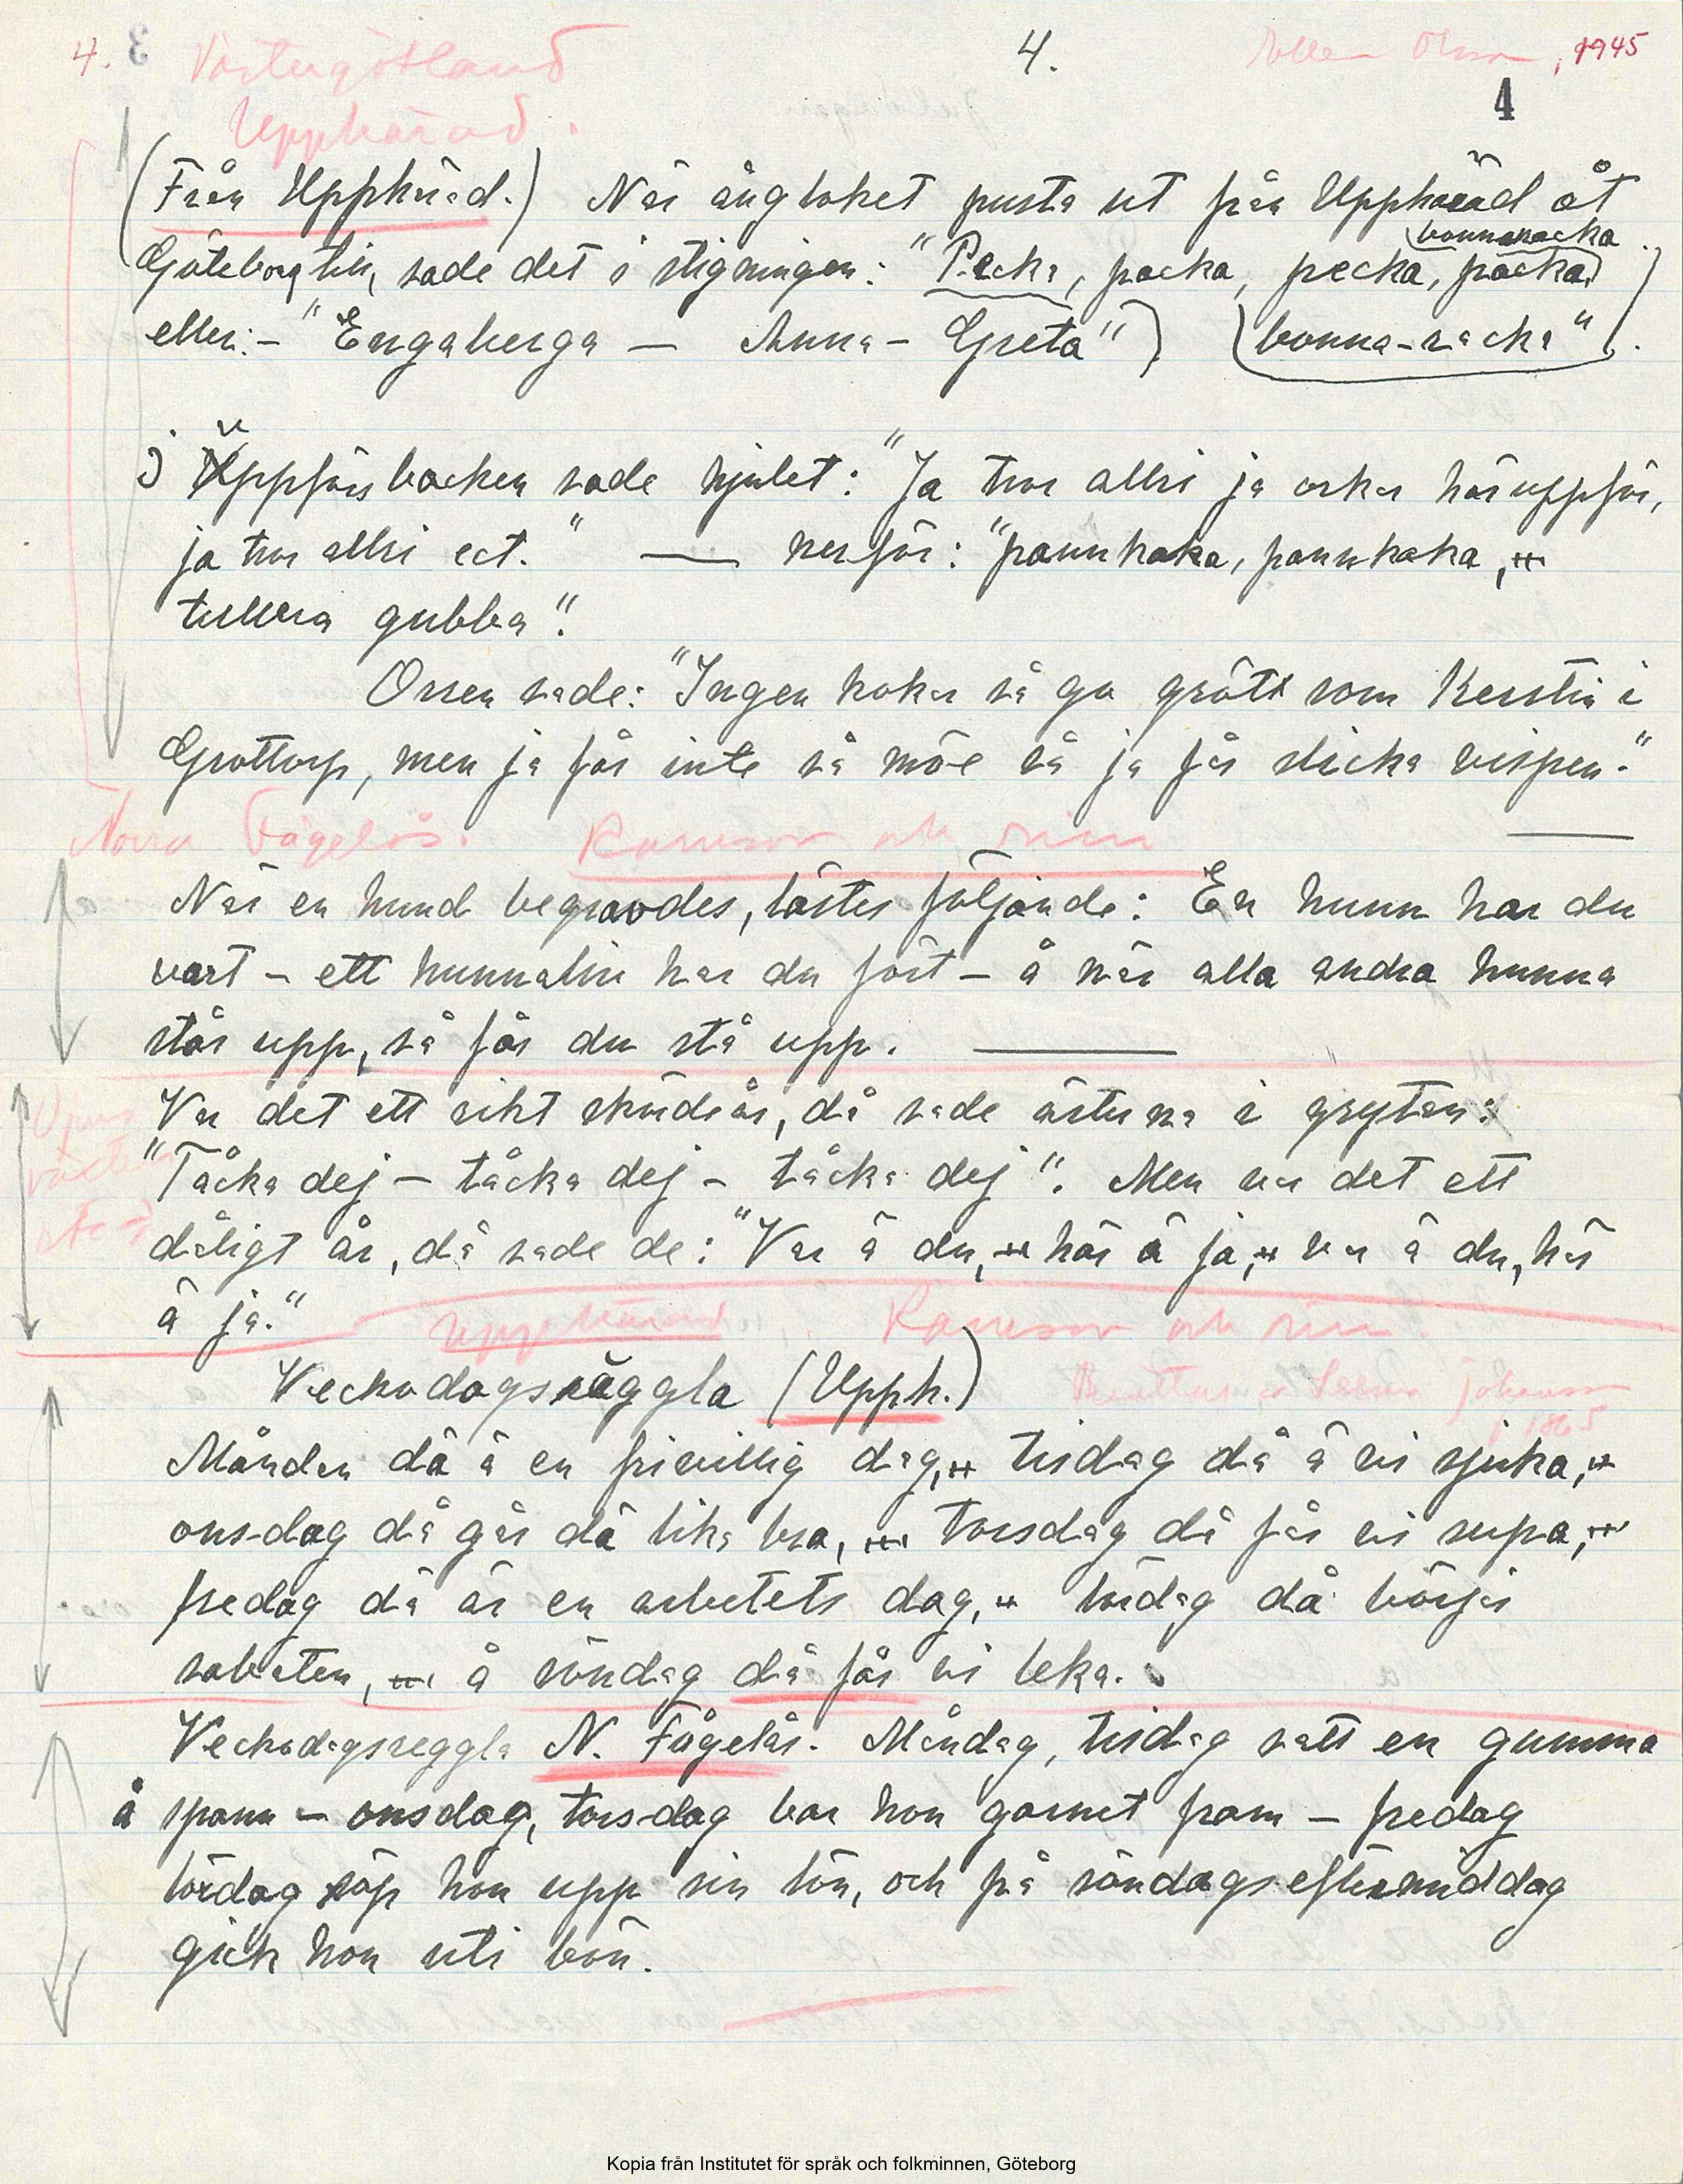 4. 3 Västergötland 4. Ellen Olson, 1945
Upphärad. 4
(Från Upphärad.) När ångloket pusta ut från Upphärad åt
bonnaracka
Göteborg till, sade det i stigningen: "Pecka, packa, pecka, packa)
eller:- "Engaberga — Anna-Greta") (bonna-racka").
I Uppförsbacken sade hjulet: "Ja tror alldri ja orkar häruppför,
ja tror alldri ect." — nerför: "pannkaka, pannkaka,
tullera gubba".
Orren sade: "Ingen kokar så go gröt som Kerstin i
Grottorp, men ja får inte så möe så ja får slicka vispen."
Norra Fågelås. Ramsor och rim
När en hund begravdes, lästes följande: En hunn har du
vart - ett hunnaliv har du fört - å när alla andra hunna
står upp, så får du stå upp. —
Var det ett rikt skördeår, då sade ärterna i grytan:
"Tåcka dej - tåcka dej - tåcka dej". Men var det ett
dåligt år, då sade de: "Var ä du, här ä ja, var ä du, här
ä ja."
Upphärad Ramsor och rim.
Veckodagsräggla (Upph.) Berättat av Johansson
f. 1865
Måndan dä ä en frivillig dag, tisdag då ä vi sjuka,
onsdag då går dä lika bra, torsdag då får vi supa,
fredag dä är en arbetets dag, lördag då börjar
sabaten, å söndag då får vi leka.
Veckodagsreggla N. Fågelås. Måndag, tisdag satt en gumma
å spann - onsdag, torsdag bar hon garnet fram - fredag
lördag söp hon upp sin lön, och på söndagseftermiddag
gick hon uti bön.
Kopia från Institutet för språk och folkminnen, Göteborg